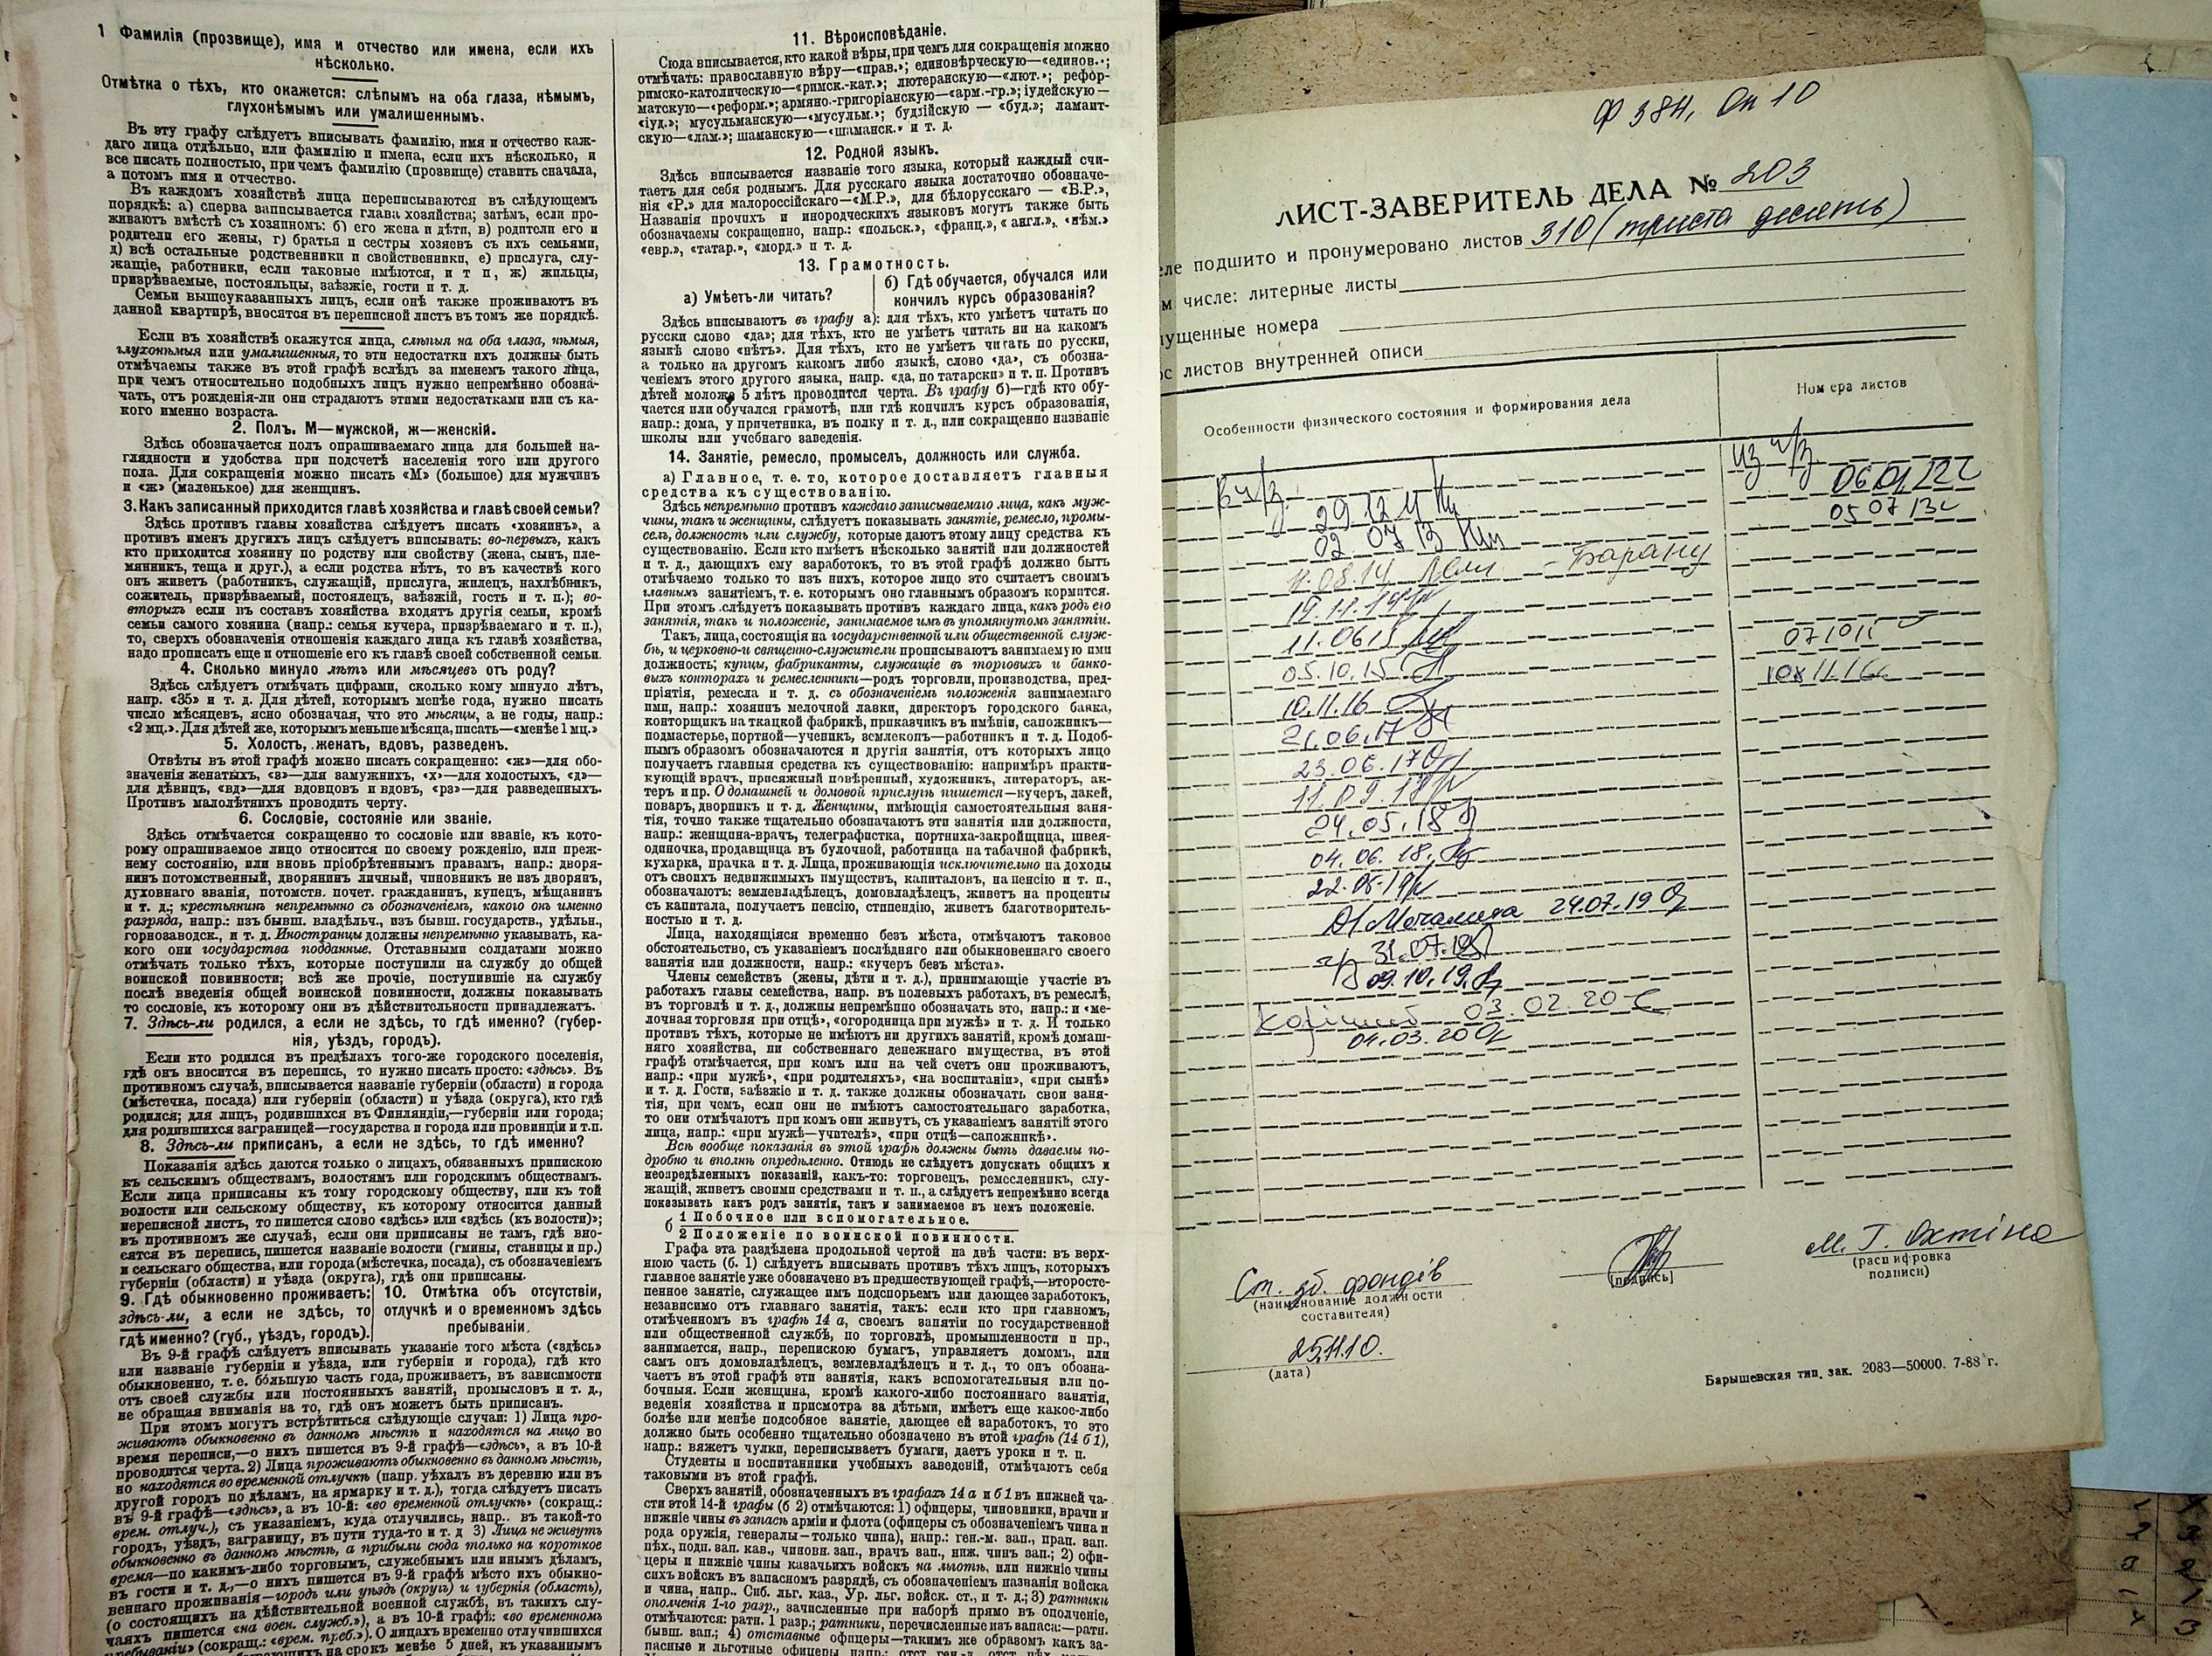 1 Фамилія (прозвище), имя и отчество или имена, если ихъ
нѣсколько.
Отмѣтка о тѣхъ, кто окажется: слѣпымъ на оба глаза, нѣмымъ,
глухонѣмымъ или умалишеннымъ.
Въ эту графу слѣдуетъ вписывать фамилію, имя и отчество каж-
даго лица отдѣльно, или фамилію и имена, если ихъ нѣсколько, и
все писать полностью, при чемъ фамилію (прозвище) ставить сначала,
а потомъ имя и отчество.
Въ каждомъ хозяйствѣ лица переписываются въ слѣдующемъ
порядкѣ: а) сперва записывается глава хозяйства; затѣмъ, если про-
живаютъ вмѣстѣ съ хозяиномъ: б) его жена и дѣти, в) родители его и
родители его жены, г) братья и сестры хозяевъ съ ихъ семьями,
д) всѣ остальные родственники и свойственники, е) прислуга, слу-
жащіе, работники, если таковые имѣются, и т п, ж) жильцы,
призрѣваемые, постояльцы, заѣзжіе, гости и т. д.
Семьи вышеуказанныхъ лицъ, если онѣ также проживаютъ въ
данной квартирѣ, вносятся въ переписной листъ въ томъ же порядкѣ.
Если въ хозяйствѣ окажутся лица, слѣпыя на оба глаза, нѣмыя,
глухонѣмыя или умалишенныя, то эти недостатки ихъ должны быть
отмѣчаемы также въ этой графѣ вслѣдъ за именемъ такого лица,
при чемъ относительно подобныхъ лицъ нужно непремѣнно обозна-
чать, отъ рожденія-ли они страдаютъ этими недостатками или съ ка-
кого именно возраста.
2. Полъ. М—мужской, ж—женскій.
Здѣсь обозначается полъ опрашиваемаго лица для большей на-
глядности и удобства при подсчетѣ населенія того или другого
пола. Для сокращенія можно писать «М» (большое) для мужчинъ
и «ж» (маленькое) для женщинъ.
3. Какъ записанный приходится главѣ хозяйства и главѣ своей семьи?
Здѣсь противъ главы хозяйства слѣдуетъ писать «хозяинъ», а
противъ именъ другихъ лицъ слѣдуетъ вписывать: во-первыхъ, какъ
кто приходится хозяину по родству или свойству (жена, сынъ, пле-
мянникъ, теща и друг.), а если родства нѣтъ, то въ качествѣ кого
онъ живетъ (работникъ, служащій, прислуга, жилецъ, нахлѣбникъ,
сожитель, призрѣваемый, постоялецъ, заѣзжій, гость и т. п.); во-
вторыхъ если въ составъ хозяйства входятъ другія семьи, кромѣ
семьи самого хозяина (напр.: семья кучера, призрѣваемаго и т. п.),
то, сверхъ обозначенія отношенія каждаго лица къ главѣ хозяйства,
надо прописать еще и отношеніе его къ главѣ своей собственной семьи.
4. Сколько минуло лѣтъ или мѣсяцевъ отъ роду?
Здѣсь слѣдуетъ отмѣчать цифрами, сколько кому минуло лѣтъ,
напр. «35» и т. д. Для дѣтей, которымъ менѣе года, нужно писать
число мѣсяцевъ, ясно обозначая, что это мѣсяцы, а не годы, напр.:
«2 мц.». Для дѣтей же, которымъ меньше мѣсяца, писать—«менѣе 1 мц.»
5. Холостъ, женатъ, вдовъ, разведенъ.
Отвѣты въ этой графѣ можно писать сокращенно: «ж»—для обо-
значенія женатыхъ, «з»—для замужнихъ, «х»—для холостыхъ, «д»—
для дѣвицъ, «вд»—для вдовцовъ и вдовъ, «рз»—для разведенныхъ.
Противъ малолѣтнихъ проводить черту.
6. Сословіе, состояніе или званіе.
Здѣсь отмѣчается сокращенно то сословіе или званіе, къ кото-
рому опрашиваемое лицо относится по своему рожденію, или преж-
нему состоянію, или вновь пріобрѣтеннымъ правамъ, напр.: дворя-
нинъ потомственный, дворянинъ личный, чиновникъ не изъ дворянъ,
духовнаго званія, потомств. почет. гражданинъ, купецъ, мѣщанинъ
и т. д.; крестьянинъ непремѣнно съ обозначеніемъ, какого онъ именно
разряда, напр.: изъ бывш. владѣльч., изъ бывш. государств., удѣльн.,
горнозаводск., и т. д. Иностранцы должны непремѣнно указывать, ка-
кого они государства подданные. Отставными солдатами можно
отмѣчать только тѣхъ, которые поступили на службу до общей
воинской повинности; всѣ же прочіе, поступившіе на службу
послѣ введенія общей воинской повинности, должны показывать
то сословіе, къ которому они въ дѣйствительности принадлежатъ.
7. Здѣсь-ли родился, а если не здѣсь, то гдѣ именно? (губер-
нія, уѣздъ, городъ).
Если кто родился въ предѣлахъ того-же городского поселенія,
гдѣ онъ вносится въ перепись, то нужно писать просто: «здѣсь». Въ
противномъ случаѣ, вписывается названіе губерніи (области) и города
(мѣстечка, посада) или губерніи (области) и уѣзда (округа), кто гдѣ
родился; для лицъ, родившихся въ Финляндіи,—губерніи или города;
для родившихся заграницей—государства и города или провинціи и т.п.
8. Здѣсь-ли приписанъ, а если не здѣсь, то гдѣ именно?
Показанія здѣсь даются только о лицахъ, обязанныхъ припискою
къ сельскимъ обществамъ, волостямъ или городскимъ обществамъ.
Если лица приписаны къ тому городскому обществу, или къ той
волости или сельскому обществу, къ которому относится данный
переписной листъ, то пишется слово «здѣсь» или «здѣсь (къ волости)»;
въ противномъ же случаѣ, если они приписаны не тамъ, гдѣ вно-
сятся въ перепись, пишется названіе волости (гмины, станицы и пр.)
и сельскаго общества, или города (мѣстечка, посада), съ обозначеніемъ
губерніи (области) и уѣзда (округа), гдѣ они приписаны.
9. Гдѣ обыкновенно проживаетъ:
здѣсь-ли, а если не здѣсь, то
гдѣ именно? (губ., уѣздъ, городъ).
10. Отмѣтка объ отсутствіи,
отлучкѣ и о временномъ здѣсь
пребываніи.
Въ 9-й графѣ слѣдуетъ вписывать указаніе того мѣста («здѣсь»
или названіе губерніи и уѣзда, или губерніи и города), гдѣ кто
обыкновенно, т. е. бо́льшую часть года, проживаетъ, въ зависимости
отъ своей службы или постоянныхъ занятій, промысловъ и т. д.,
не обращая вниманія на то, гдѣ онъ можетъ быть приписанъ.
При этомъ могутъ встрѣтиться слѣдующіе случаи: 1) Лица про-
живаютъ обыкновенно въ данномъ мѣстѣ и находятся на лицо во
время переписи,—о нихъ пишется въ 9-й графѣ—«здѣсь», а въ 10-й
проводится черта. 2) Лица проживаютъ обыкновенно въ данномъ мѣстѣ,
но находятся во временной отлучкѣ (напр. уѣхалъ въ деревню или въ
другой городъ по дѣламъ, на ярмарку и т. д.), тогда слѣдуетъ писать
въ 9-й графѣ—«здѣсь», а въ 10-й: «во временной отлучкѣ» (сокращ.:
врем. отлуч.), съ указаніемъ, куда отлучились, напр.. въ такой-то
городъ, уѣздъ, заграницу, въ пути туда-то и т. д 3) Лица не живутъ
обыкновенно въ данномъ мѣстѣ, а прибыли сюда только на короткое
время—по какимъ-либо торговымъ, служебнымъ или инымъ дѣламъ,
въ гости и т. д.,—о нихъ пишется въ 9-й графѣ мѣсто ихъ обыкно-
веннаго проживанія—городъ или уѣздъ (округъ) и губернія (область),
(о состоящихъ на дѣйствительной военной службѣ, въ такихъ слу-
чаяхъ пишется «на воен. служб.»), а въ 10-й графѣ: «во временномъ
пребываніи» (сокращ.: «врем. преб.»). О лицахъ временно отлучившихся
на срокъ менѣе 5 дней, къ указаннымъ
11. Вѣроисповѣданіе.
Сюда вписывается, кто какой вѣры, при чемъ для сокращенія можно
отмѣчать: православную вѣру—«прав.»; единовѣрческую—«единов.»;
римско-католическую—«римск.-кат.»; лютеранскую—«лют.»; рефор-
матскую—«реформ.»; армяно-григоріанскую—«арм.-гр.»; іудейскую—
«іуд.»; мусульманскую—«мусульм.»; буддійскую — «буд.»; ламаит-
скую—«лам.»; шаманскую—«шаманск.» и т. д.
12. Родной языкъ.
Здѣсь вписывается названіе того языка, который каждый счи-
таетъ для себя роднымъ. Для русскаго языка достаточно обозначе-
нія «Р.» для малороссійскаго—«М.Р.», для бѣлорусскаго — «Б.Р.»,
Названія прочихъ и инородческихъ языковъ могутъ также быть
обозначаемы сокращенно, напр.: «польск.», «франц.», « англ.», «нѣм.»
«евр.», «татар.», «морд.» и т. д.
13. Грамотность.
а) Умѣетъ-ли читать?
б) Гдѣ обучается, обучался или
кончилъ курсъ образованія?
Здѣсь вписываютъ въ графу а): для тѣхъ, кто умѣетъ читать по
русски слово «да»; для тѣхъ, кто не умѣетъ читать ни на какомъ
языкѣ слово «нѣтъ». Для тѣхъ, кто не умѣетъ читать по русски,
а только на другомъ какомъ либо языкѣ, слово «да», съ обозна-
ченіемъ этого другого языка, напр. «да, по татарски» и т. п. Противъ
дѣтей моложе 5 лѣтъ проводится черта. Въ графу б)—гдѣ кто обу-
чается или обучался грамотѣ, или гдѣ кончилъ курсъ образованія,
напр.: дома, у причетника, въ полку и т. д., или сокращенно названіе
школы или учебнаго заведенія.
14. Занятіе, ремесло, промыселъ, должность или служба.
а) Главное, т. е. то, которое доставляетъ главныя
средства къ существованію.
Здѣсь непремѣнно противъ каждаго записываемаго лица, какъ муж-
чины, такъ и женщины, слѣдуетъ показывать занятіе, ремесло, промы-
селъ, должность или службу, которые даютъ этому лицу средства къ
существованію. Если кто имѣетъ нѣсколько занятій или должностей
и т. д., дающихъ ему заработокъ, то въ этой графѣ должно быть
отмѣчаемо только то изъ нихъ, которое лицо это считаетъ своимъ
главнымъ занятіемъ, т. е. которымъ оно главнымъ образомъ кормится.
При этомъ слѣдуетъ показывать противъ каждаго лица, какъ родъ его
занятія, такъ и положеніе, занимаемое имъ въ упомянутомъ занятіи.
Такъ, лица, состоящія на государственной или общественной служ-
бѣ, и церковно-и священно-служители прописываютъ занимаемую ими
должность; купцы, фабриканты, служащіе въ торговыхъ и банко-
выхъ конторахъ и ремесленники—родъ торговли, производства, пред-
пріятія, ремесла и т. д. съ обозначеніемъ положенія занимаемаго
ими, напр.: хозяинъ мелочной лавки, директоръ городского банка,
конторщикъ на ткацкой фабрикѣ, приказчикъ въ имѣніи, сапожникъ—
подмастерье, портной—ученикъ, землекопъ—работникъ и т. д. Подоб-
нымъ образомъ обозначаются и другія занятія, отъ которыхъ лицо
получаетъ главныя средства къ существованію: напримѣръ практи-
кующій врачъ, присяжный повѣренный, художникъ, литераторъ, ак-
теръ и пр. О домашней и домовой прислугѣ пишется—кучеръ, лакей,
поваръ, дворникъ и т. д. Женщины, имѣющія самостоятельныя заня-
тія, точно также тщательно обозначаютъ эти занятія или должности,
напр.: женщина-врачъ, телеграфистка, портниха-закройщица, швея-
одиночка, продавщица въ булочной, работница на табачной фабрикѣ,
кухарка, прачка и т. д. Лица, проживающія исключительно на доходы
отъ своихъ недвижимыхъ имуществъ, капиталовъ, на пенсію и т. п.,
обозначаютъ: землевладѣлецъ, домовладѣлецъ, живетъ на проценты
съ капитала, получаетъ пенсію, стипендію, живетъ благотворитель-
ностью и т. д.
Лица, находящіяся временно безъ мѣста, отмѣчаютъ таковое
обстоятельство, съ указаніемъ послѣдняго или обыкновеннаго своего
занятія или должности, напр.: «кучеръ безъ мѣста».
Члены семействъ (жены, дѣти и т. д.), принимающіе участіе въ
работахъ главы семейства, напр. въ полевыхъ работахъ, въ ремеслѣ,
въ торговлѣ и т. д., должны непремѣнно обозначать это, напр.: и «ме-
лочная торговля при отцѣ», «огородница при мужѣ» и т. д. И только
противъ тѣхъ, которые не имѣютъ ни другихъ занятій, кромѣ домаш-
няго хозяйства, ни собственнаго денежнаго имущества, въ этой
графѣ отмѣчается, при комъ или на чей счетъ они проживаютъ,
напр.: «при мужѣ», «при родителяхъ», «на воспитаніи», «при сынѣ»
и т. д. Гости, заѣзжіе и т. д. также должны обозначать свои заня-
тія, при чемъ, если они не имѣютъ самостоятельнаго заработка,
то они отмѣчаютъ при комъ они живутъ, съ указаніемъ занятій этого
лица, напр.: «при мужѣ—учителѣ», «при отцѣ—сапожникѣ».
Всѣ вообще показанія въ этой графѣ должны быть даваемы по-
дробно и вполнѣ опредѣленно. Отнюдь не слѣдуетъ допускать общихъ и
неопредѣленныхъ показаній, какъ-то: торговецъ, ремесленникъ, слу-
жащій, живетъ своими средствами и т. п., а слѣдуетъ непремѣнно всегда
показывать какъ родъ занятія, такъ и занимаемое въ немъ положеніе.
б 1 Побочное или вспомогательное.
2 Положеніе по воинской повинности.
Графа эта раздѣлена продольной чертой на двѣ части: въ верх-
нюю часть (б. 1) слѣдуетъ вписывать противъ тѣхъ лицъ, которыхъ
главное занятіе уже обозначено въ предшествующей графѣ,—второсте-
пенное занятіе, служащее имъ подспорьемъ или дающее заработокъ,
независимо отъ главнаго занятія, такъ: если кто при главномъ,
отмѣченномъ въ графѣ 14 а, своемъ занятіи по государственной
или общественной службѣ, по торговлѣ, промышленности и пр.,
занимается, напр., перепискою бумагъ, управляетъ домомъ, или
самъ онъ домовладѣлецъ, землевладѣлецъ и т. д., то онъ обозна-
чаетъ въ этой графѣ эти занятія, какъ вспомогательныя или по-
бочныя. Если женщина, кромѣ какого-либо постояннаго занятія,
веденія хозяйства и присмотра за дѣтьми, имѣетъ еще какое-либо
болѣе или менѣе подсобное занятіе, дающее ей заработокъ, то это
должно быть особенно тщательно обозначено въ этой графѣ (14 б 1),
напр.: вяжетъ чулки, переписываетъ бумаги, даетъ уроки и т. п.
Студенты и воспитанники учебныхъ заведеній, отмѣчаютъ себя
таковыми въ этой графѣ.
Сверхъ занятій, обозначенныхъ въ графахъ 14 а и б 1 въ нижней ча-
сти этой 14-й графы (б 2) отмѣчаются: 1) офицеры, чиновники, врачи и
нижніе чины въ запасѣ арміи и флота (офицеры съ обозначеніемъ чина и
рода оружія, генералы—только чина), напр.: ген.-м. зап., прап. зап.
пѣх., подп. зап. кав., чиновн. зап., врачъ зап., ниж. чинъ зап.; 2) офи-
церы и нижніе чины казачьихъ войскъ на льготѣ, или нижніе чины
сихъ войскъ въ запасномъ разрядѣ, съ обозначеніемъ названія войска
и чина, напр.. Сиб. льг. каз., Ур. льг. войск. ст., и т. д.; 3) ратники
ополченія 1-го разр., зачисленные при наборѣ прямо въ ополченіе,
отмѣчаются: ратн. 1 разр.; ратники, перечисленные изъ запаса:—ратн.
бывш. зап.; 4) отставные офицеры—такимъ же образомъ какъ за-
пасные и льготные офицеры
Ф 384, Оп 10
ЛИСТ-ЗАВЕРИТЕЛЬ ДЕЛА № 203
еле подшито и пронумеровано листов 310 (триста десять)
м числе: литерные листы
ущенные номера
с листов внутренней описи
Особенности физического состояния и формирования дела
Номера листов
В ч/з
из ч/з
29 12 11
06 01 12 с
02 07 13
05 07 13 с
11.08.14 - Барану
19.11.14
11.06 15
07 10 15
05.10.15
10.11.16
10 11.16 с
21.06.17
23.06.17
11.09.17
24.05.18
04.06.18
22.05.19
24.07.19
ч/з 31.07.19
09.10.19
03.02.20
04.03.20
Ст. зб. фондів
(наименование должности
составителя)
[подпись]
М. Г. Охтіна
(расшифровка
подписи)
25.11.10.
(дата)
Барышевская тип. зак. 2083—50000. 7-88 г.